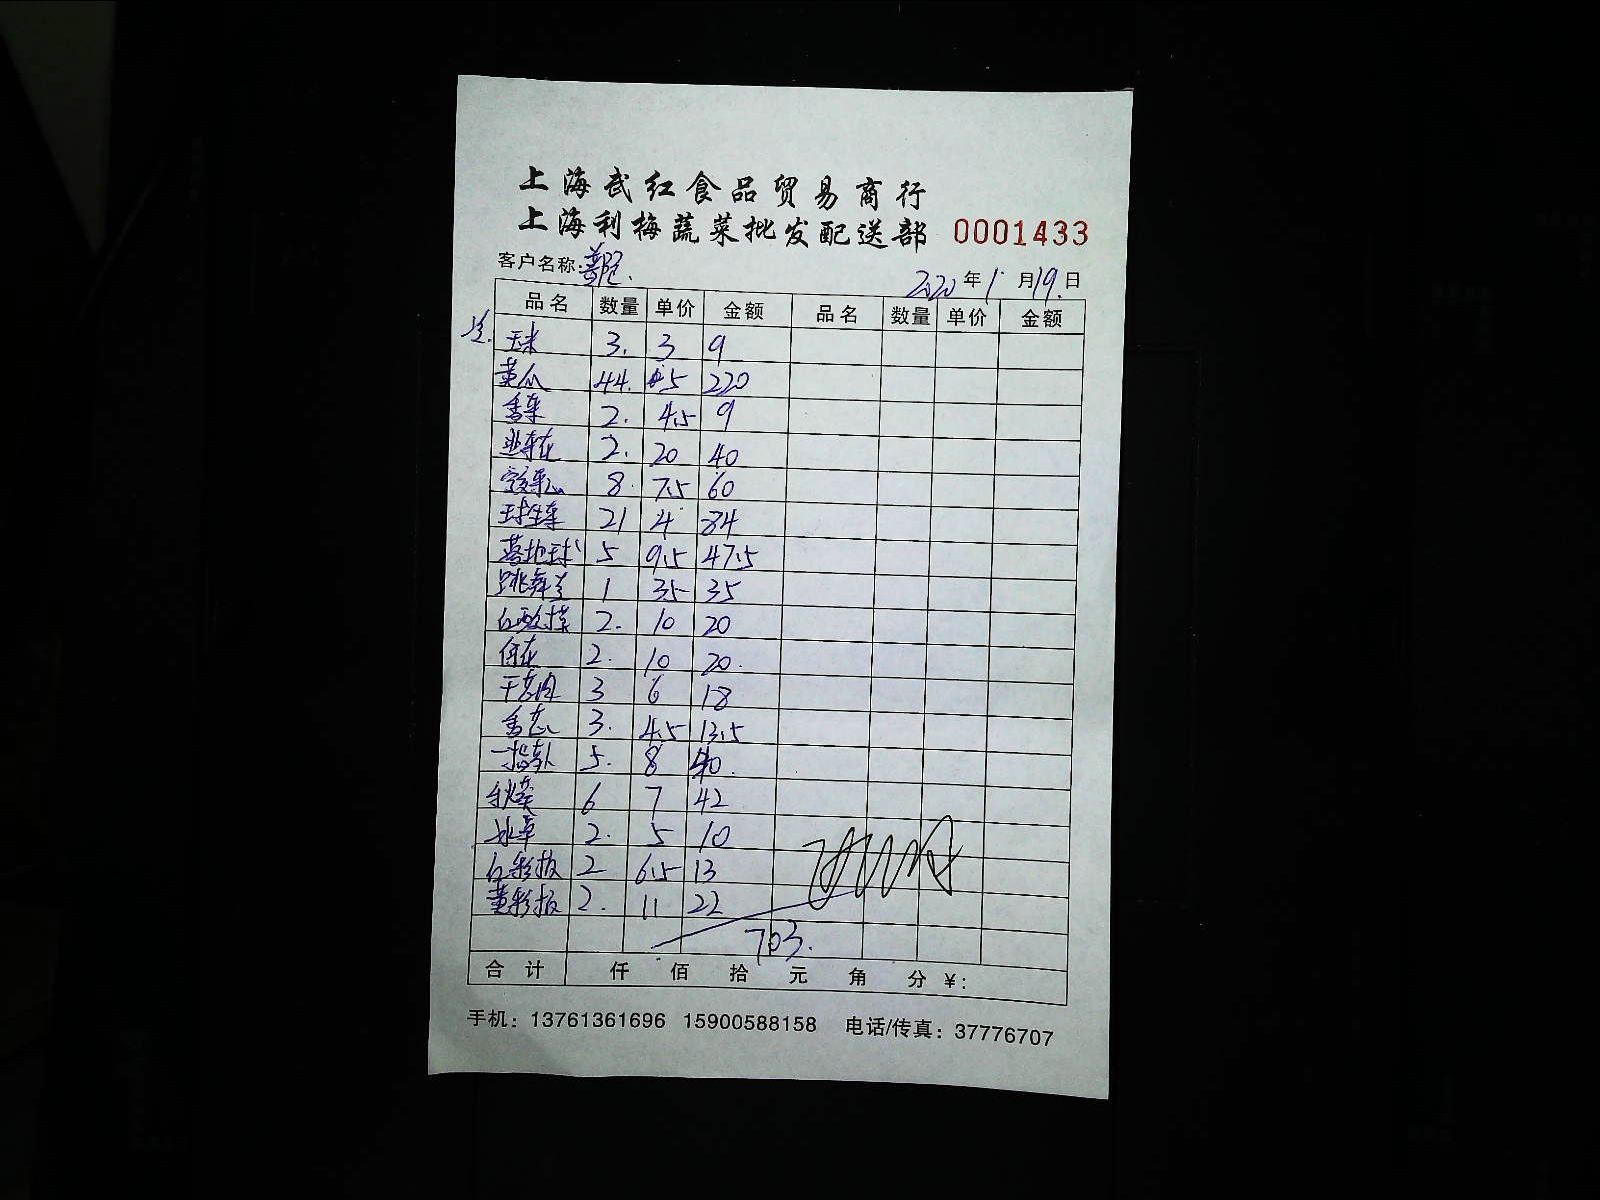 上海武红食品贸易商行
上海利梅蔬菜批发配送部 0001433
客户名称: 2020年1月19日
品名 数量 单价 金额 品名 数量 单价 金额
玉米 3. 3 9
黄瓜 44. 5 220
香菜 2. 4.5 9
韭菜花 2. 20 40
8. 7.5 60
球生菜 21 4 84
落地球 5 9.5 47.5
跳舞兰 1 35 35
红酸模 2. 10 20
2. 10 20.
干葱肉 3 6 18
香葱 3. 4.5 13.5
5. 8 40.
秋葵 6 7 42
冰草 2. 5 10
红彩椒 2 6.5 13
黄彩椒 2. 11 22
703.
合计 仟 佰 拾 元 角 分 ¥:
手机: 13761361696 15900588158 电话/传真: 37776707